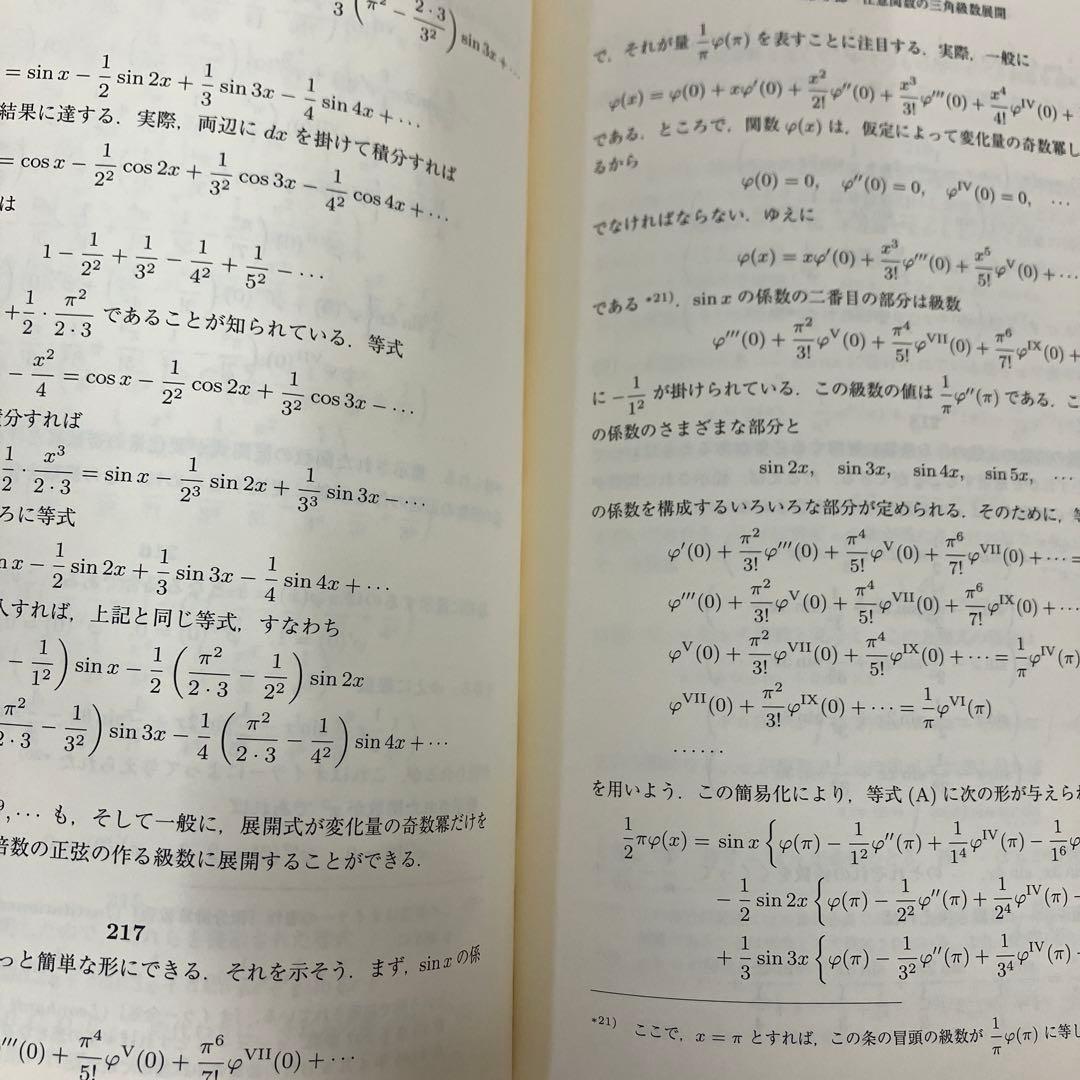 3 (π² − 2·3/3²) sin 3x + ···
= sin x − 1/2 sin 2x + 1/3 sin 3x − 1/4 sin 4x + ···
結果に達する．実際，両辺に dx を掛けて積分すれば
= cos x − 1/2² cos 2x + 1/3² cos 3x − 1/4² cos 4x + ···
は
1 − 1/2² + 1/3² − 1/4² + 1/5² − ···
+ 1/2 · π²/2·3 であることが知られている．等式
− x²/4 = cos x − 1/2² cos 2x + 1/3² cos 3x − ···
分すれば
1/2 · x³/2·3 = sin x − 1/2³ sin 2x + 1/3³ sin 3x − ···
ろに等式
x − 1/2 sin 2x + 1/3 sin 3x − 1/4 sin 4x + ···
入すれば，上記と同じ等式，すなわち
− 1/1²) sin x − 1/2 (π²/2·3 − 1/2²) sin 2x
π²/2·3 − 1/3²) sin 3x − 1/4 (π²/2·3 − 1/4²) sin 4x + ···
, ··· も，そして一般に，展開式が変化量の奇数冪だけを
倍数の正弦の作る級数に展開することができる．
217
っと簡単な形にできる．それを示そう．まず，sin x の係
‴(0) + π⁴/5! φⱽ(0) + π⁶/7! φⱽᴵᴵ(0) + ···
任意関数の三角級数展開
で，それが量 1/π φ(π) を表すことに注目する．実際，一般に
φ(x) = φ(0) + xφ′(0) + x²/2! φ″(0) + x³/3! φ‴(0) + x⁴/4! φᴵⱽ(0) +
である．ところで，関数 φ(x) は，仮定によって変化量の奇数冪し
るから
φ(0) = 0, φ″(0) = 0, φᴵⱽ(0) = 0, ···
でなければならない．ゆえに
φ(x) = xφ′(0) + x³/3! φ‴(0) + x⁵/5! φⱽ(0) + ···
である *21)．sin x の係数の二番目の部分は級数
φ‴(0) + π²/3! φⱽ(0) + π⁴/5! φⱽᴵᴵ(0) + π⁶/7! φᴵˣ(0) +
に −1/1² が掛けられている．この級数の値は 1/π φ″(π) である．こ
の係数のさまざまな部分と
sin 2x, sin 3x, sin 4x, sin 5x, ···
の係数を構成するいろいろな部分が定められる．そのために，等
φ′(0) + π²/3! φ‴(0) + π⁴/5! φⱽ(0) + π⁶/7! φⱽᴵᴵ(0) + ··· =
φ‴(0) + π²/3! φⱽ(0) + π⁴/5! φⱽᴵᴵ(0) + π⁶/7! φᴵˣ(0) + ···
φⱽ(0) + π²/3! φⱽᴵᴵ(0) + π⁴/5! φᴵˣ(0) + ··· = 1/π φᴵⱽ(π)
φⱽᴵᴵ(0) + π²/3! φᴵˣ(0) + ··· = 1/π φⱽᴵ(π)
······
を用いよう．この簡易化により，等式 (A) に次の形が与えられ
1/2 πφ(x) = sin x {φ(π) − 1/1² φ″(π) + 1/1⁴ φᴵⱽ(π) − 1/1⁶ φ
− 1/2 sin 2x {φ(π) − 1/2² φ″(π) + 1/2⁴ φᴵⱽ(π) −
+ 1/3 sin 3x {φ(π) − 1/3² φ″(π) + 1/3⁴ φᴵⱽ(π) −
*21) ここで，x = π とすれば，この条の冒頭の級数が 1/π φ(π) に等し